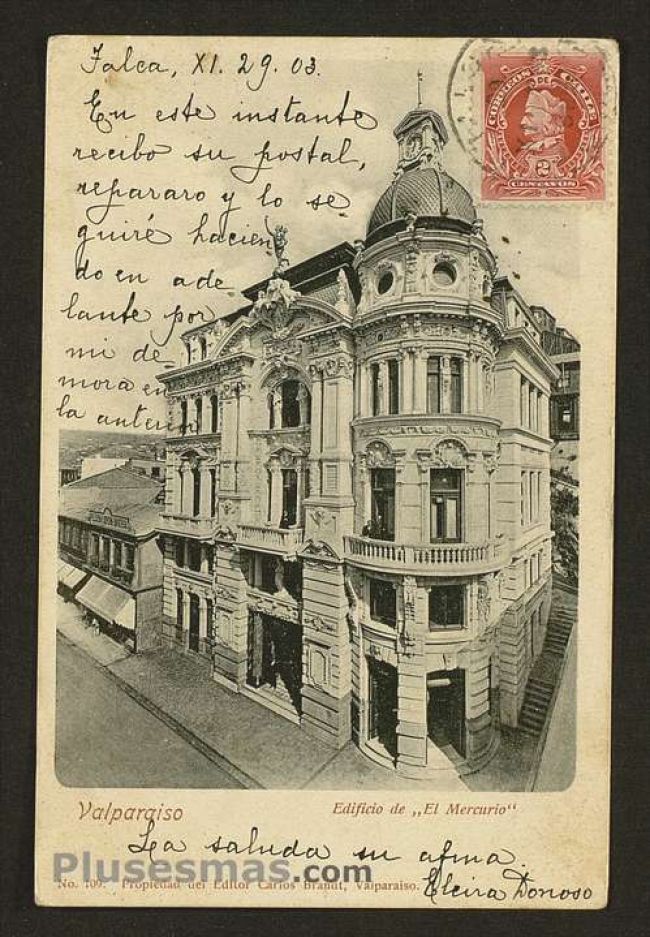 Talca, XI. 29. 03.
En este instante
recibo su postal,
repararo y lo se
guiré hacien
do en ade
lante por
mi de
mora en
la anterior
CORREOS DE CHILE
2
CENTAVOS
Valparaiso
Edificio de „El Mercurio“
La saluda su afma.
Elcira Donoso
Plusesmas.com
No. 109. Propiedad del Editor Carlos Brandt, Valparaiso.